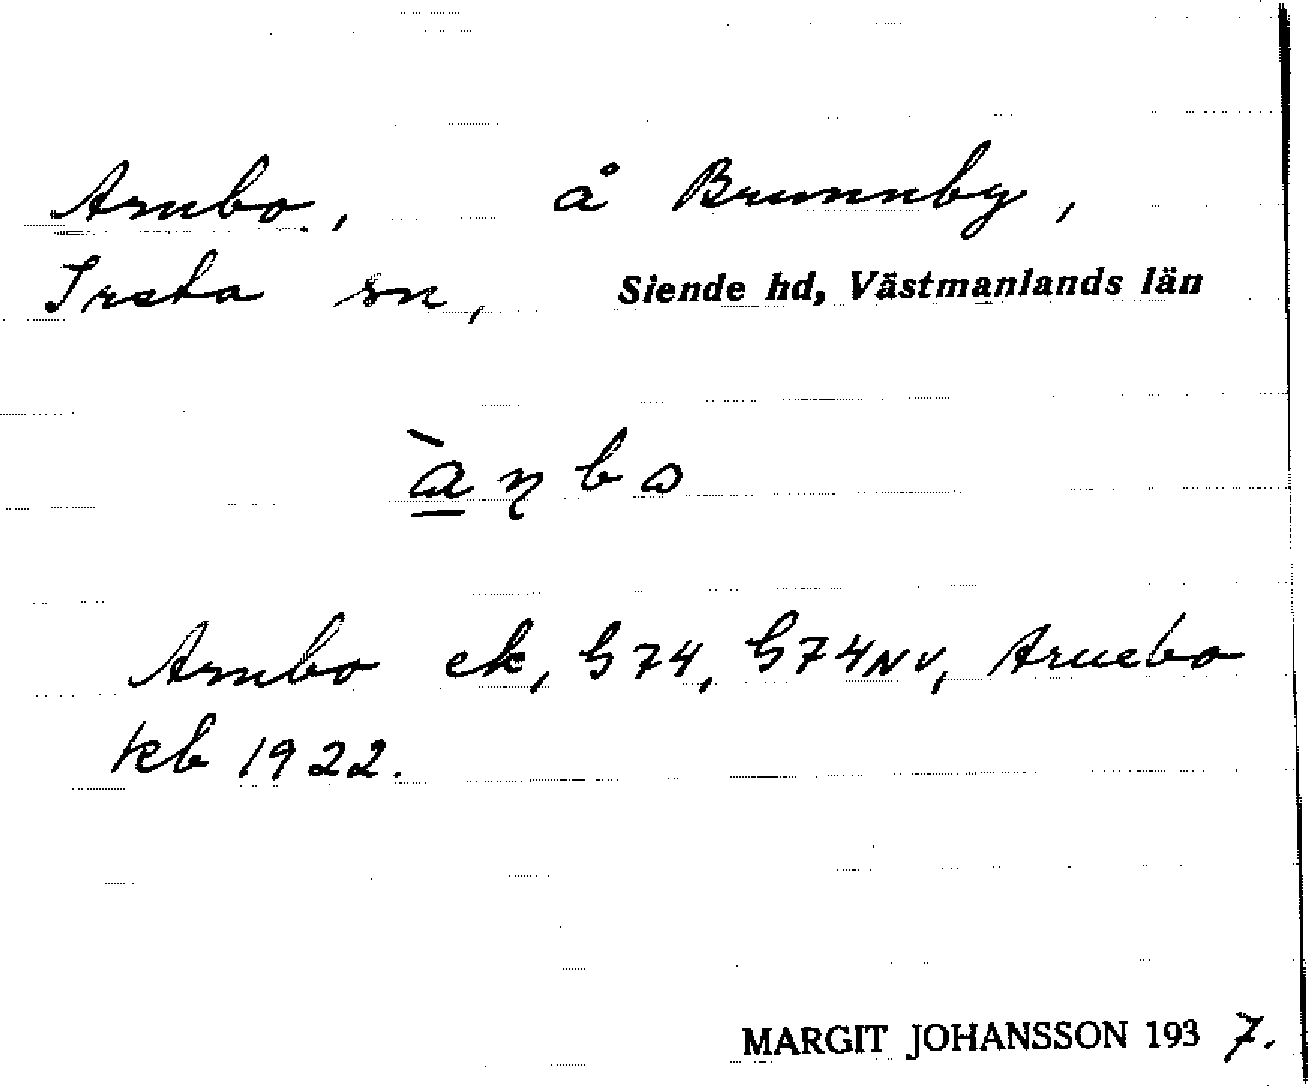 Arnbo, å Brunnby,
Irsta sn, Siende hd, Västmanlands län
ànbo
Arnbo ek, G74, G74NV, Arnebo
kb 1922.
MARGIT JOHANSSON 1937.